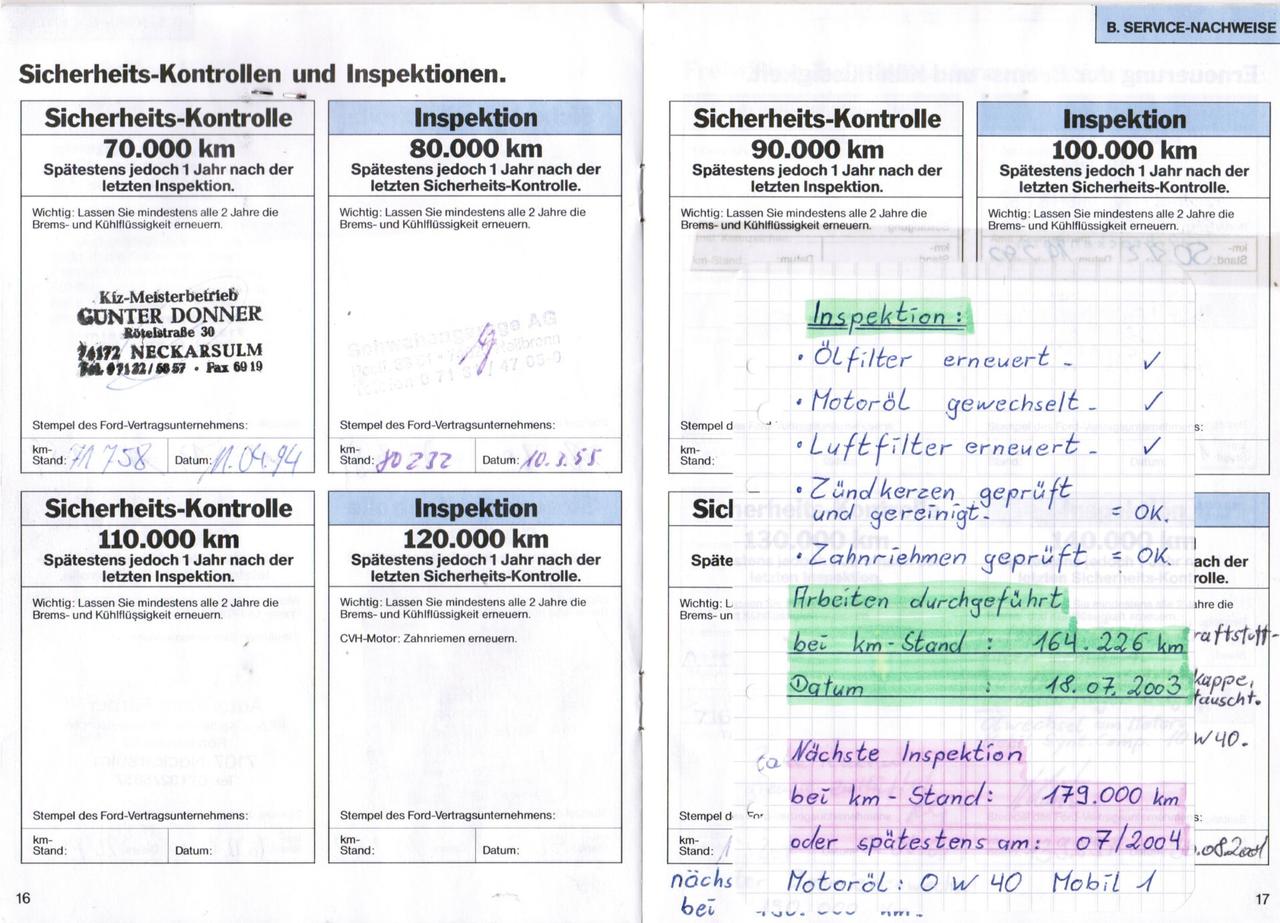 B. SERVICE-NACHWEISE
Sicherheits-Kontrollen und Inspektionen.
Sicherheits-Kontrolle
70.000 km
Spätestens jedoch 1 Jahr nach der
letzten Inspektion.
Wichtig: Lassen Sie mindestens alle 2 Jahre die
Brems- und Kühlflüssigkeit erneuern.
Kfz-Meisterbetrieb
GÜNTER DONNER
Rötelstraße 30
74172 NECKARSULM
Tel. 07132/5857 · Fax 6919
Stempel des Ford-Vertragsunternehmens:
km-
Stand: 71 758 Datum: 11.04.94
Inspektion
80.000 km
Spätestens jedoch 1 Jahr nach der
letzten Sicherheits-Kontrolle.
Wichtig: Lassen Sie mindestens alle 2 Jahre die
Brems- und Kühlflüssigkeit erneuern.
Schwabengarage AG
Heilbronn
Stempel des Ford-Vertragsunternehmens:
km-
Stand: 80232 Datum: 10.
Sicherheits-Kontrolle
110.000 km
Spätestens jedoch 1 Jahr nach der
letzten Inspektion.
Wichtig: Lassen Sie mindestens alle 2 Jahre die
Brems- und Kühlflüssigkeit erneuern.
Stempel des Ford-Vertragsunternehmens:
km-
Stand: Datum:
Inspektion
120.000 km
Spätestens jedoch 1 Jahr nach der
letzten Sicherheits-Kontrolle.
Wichtig: Lassen Sie mindestens alle 2 Jahre die
Brems- und Kühlflüssigkeit erneuern.
CVH-Motor: Zahnriemen erneuern.
Stempel des Ford-Vertragsunternehmens:
km-
Stand: Datum:
16
Sicherheits-Kontrolle
90.000 km
Spätestens jedoch 1 Jahr nach der
letzten Inspektion.
Wichtig: Lassen Sie mindestens alle 2 Jahre die
Brems- und Kühlflüssigkeit erneuern.
Stempel d
km-
Stand:
Inspektion
100.000 km
Spätestens jedoch 1 Jahr nach der
letzten Sicherheits-Kontrolle.
Wichtig: Lassen Sie mindestens alle 2 Jahre die
Brems- und Kühlflüssigkeit erneuern.
s:
Inspektion:
• Ölfilter erneuert - ✓
• Motoröl gewechselt - ✓
• Luftfilter erneuert - ✓
• Zündkerzen geprüft
und gereinigt. = OK.
• Zahnriemen geprüft = OK.
Arbeiten durchgeführt
bei km-Stand : 164.226 km
Datum : 18.07.2003
Nächste Inspektion
bei km-Stand: 179.000 km
oder spätestens am: 07/2004
Motoröl: 0W40 Mobil 1
Sicherheits-Kontrolle
130.000 km
Späte
letzten Inspektion.
Wichtig: L
Brems- un
Stempel d
km-
Stand:
140.000 km
nach der
rolle.
ahre die
raftstoff-
kappe,
tauscht.
W40.
s:
.08.2001
nächs
bei 150.000 km.
17